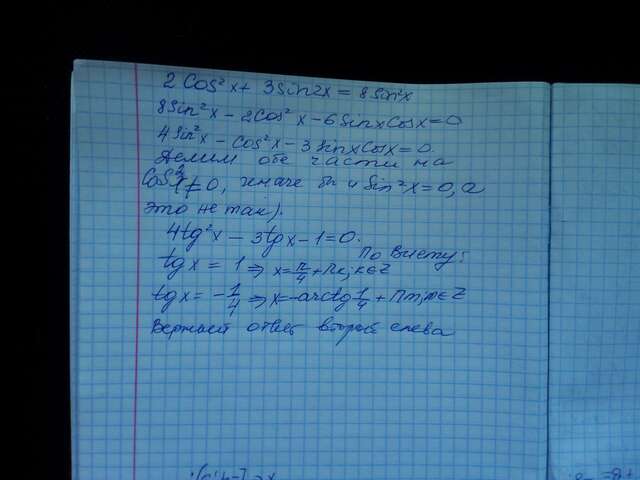 2 Cos²x + 3Sin2x = 8Sin²x
8Sin²x - 2Cos²x - 6SinxCosx = 0
4Sin²x - Cos²x - 3SinxCosx = 0.
Делим обе части на
Cos²x ≠ 0, иначе бы и Sin²x = 0, а
это не так).
4tg²x - 3tgx - 1 = 0.
По Виету:
tgx = 1 ⇒ x = π/4 + πk, k∈Z
tgx = -1/4 ⇒ x = -arctg 1/4 + πm, m∈Z
Верный ответ второй слева